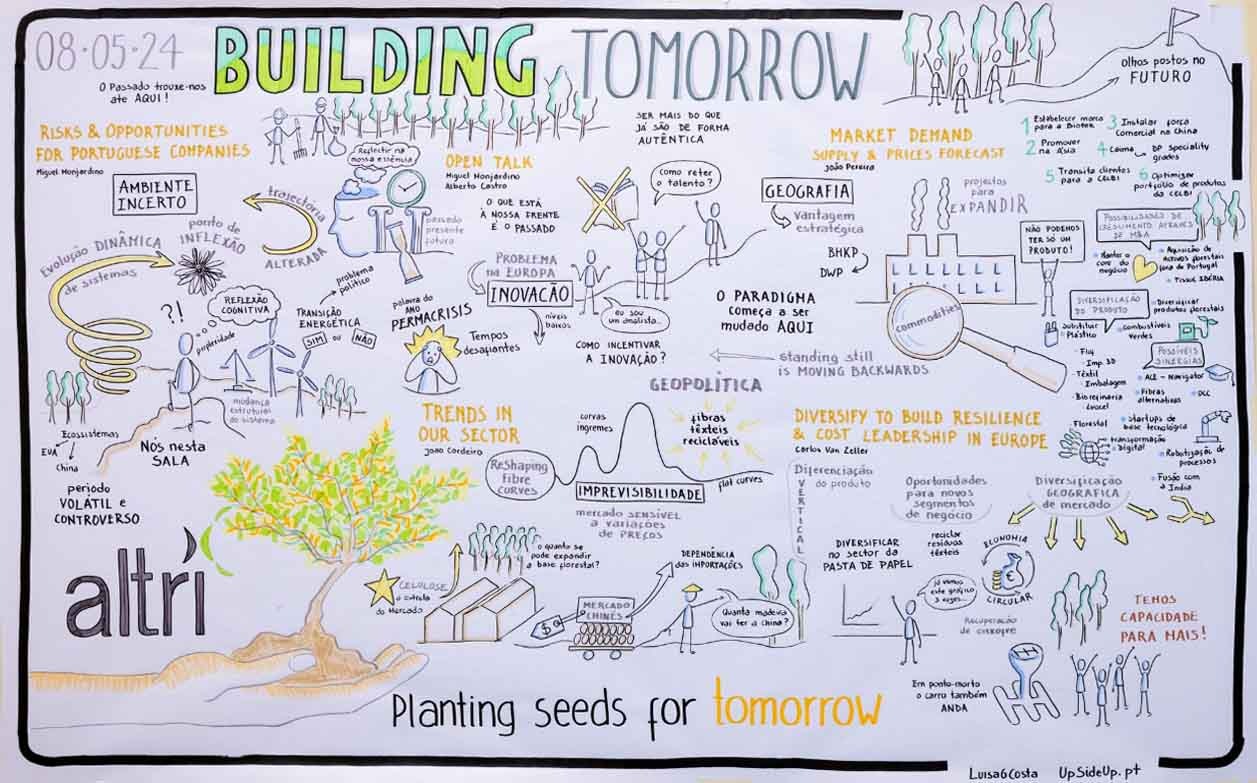 08·05·24
BUILDING TOMORROW
O Passado trouxe-nos
ate AQUI!
olhos postos no
FUTURO
RISKS & OPPORTUNITIES
FOR PORTUGUESE COMPANIES
Miguel Monjardino
AMBIENTE
INCERTO
trajetória
ALTERADA
ponto de
INFLEXÃO
Evolução DINÂMICA
de sistemas
?!
REFLEXÃO
COGNITIVA
perplexidade
TRANSIÇÃO
ENERGÉTICA
SIM ou NÃO
problema
político
mudança
estrutural
do sistema
Ecossistemas
EUA
China
Nós nesta
SALA
período
VOLÁTIL e
CONTROVERSO
Reflectir na
nossa essência
OPEN TALK
Miguel Monjardino
Alberto Castro
passado
presente
futuro
O QUE ESTÁ
À NOSSA FRENTE
É O PASSADO
palavra do
ANO
PERMACRISIS
Tempos
desafiantes
SER MAIS DO QUE
JÁ SÃO DE FORMA
AUTÊNTICA
Como reter
o talento?
PROBLEMA
na EUROPA
INOVAÇÃO
níveis
baixos
eu sou
um analista...
COMO INCENTIVAR
A INOVAÇÃO?
GEOGRAFIA
vantagem
estratégica
BHKP
DWP
O PARADIGMA
começa a ser
mudado AQUI
standing still
is MOVING BACKWARDS
GEOPOLÍTICA
MARKET DEMAND
SUPPLY & PRICES FORECAST
João Pereira
projectos
para
EXPANDIR
commodities
NÃO PODEMOS
TER SÓ UM
PRODUTO!
1 Estabelecer marca
para a Biotek
2 Promover
na Ásia
3 Instalar força
Comercial na China
4 Caima
DP speciality
grades
5 Transita clientes
para a CELBI
6 Optimizar
portfólio de produtos
da CELBI
POSSIBILIDADES DE
CRESCIMENTO ATRAVÉS
DE M&A
Manter o
core do
negócio
Aquisição de
Activos florestais
fora de Portugal
Tissue IBÉRIA
DIVERSIFICAÇÃO
DO PRODUTO
Diversificar
produtos florestais
Substituir
Plástico
Combustíveis
verdes
Imp. 3D
Têxtil
Embalagem
Biorefinaria
Lyocel
POSSÍVEIS
SINERGIAS
ACE - Navigator
Fibras
alternativas
Florestal
startups de
base tecnológica
transformação
digital
Robotização de
processos
Fusão com
a Índia
TRENDS IN
OUR SECTOR
João Cordeiro
Reshaping
fibre
curves
curvas
íngremes
fibras
têxteis
recicláveis
flat curves
IMPREVISIBILIDADE
mercado SENSÍVEL
a variações
de PREÇOS
CELULOSE
a estrela
do Mercado
o quanto se
pode expandir
a base florestal?
$
MERCADO
CHINÊS
DEPENDÊNCIA
das IMPORTAÇÕES
Quanta madeira
vai ter a China?
DIVERSIFY TO BUILD RESILIENCE
& COST LEADERSHIP IN EUROPE
Carlos Van Zeller
VERTICAL
Diferenciação
do produto
Oportunidades
para novos
segmentos
de negócio
Diversificação
GEOGRÁFICA
de mercado
DIVERSIFICAR
no sector da
PASTA DE PAPEL
reciclar
resíduos
têxteis
ECONOMIA
CIRCULAR
já vimos
este gráfico
3 vezes...
Recuperação
de energia
Em ponto-morto
o carro também
ANDA
TEMOS
CAPACIDADE
PARA MAIS!
altri
Planting seeds for tomorrow
LuisaGCosta UpSideUp.pt